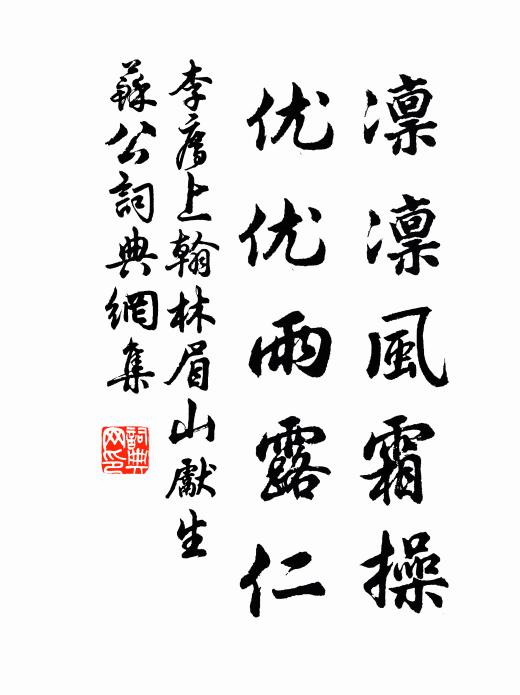 凛凛風霜操
优优雨露仁
李廌上翰林眉山獻生
蘇公詞典網集
詞典
网印